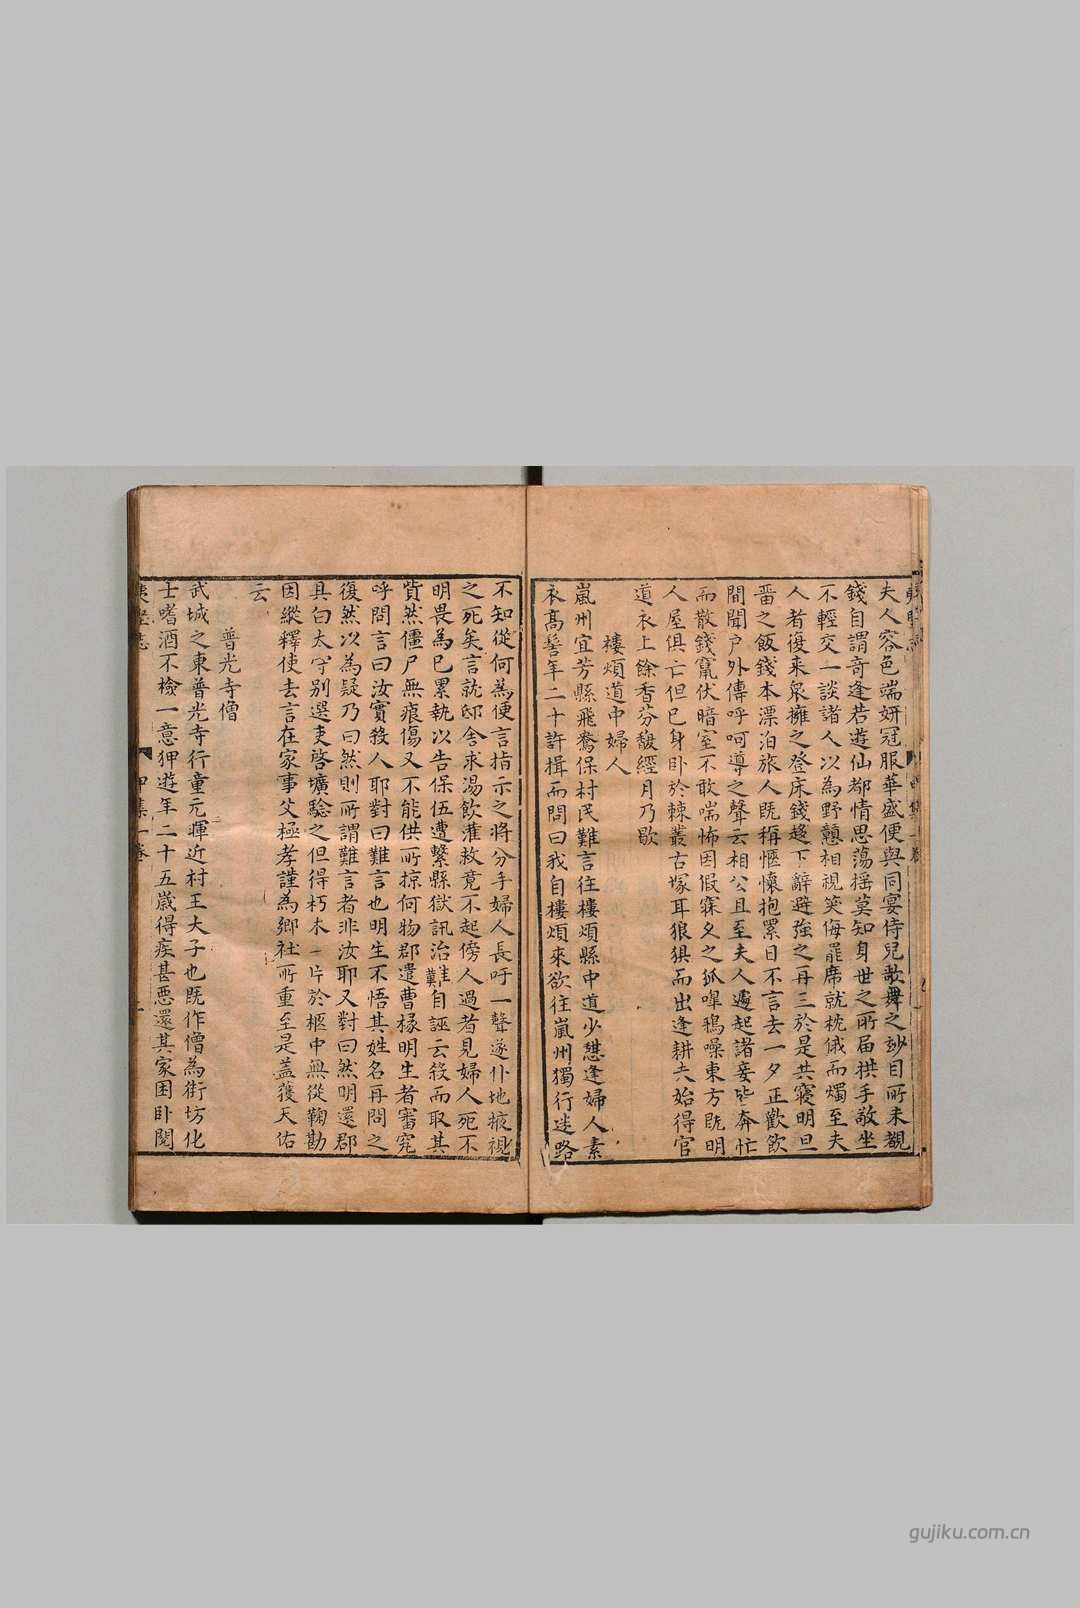 夫人容色端妍冠服華盛便與同宴侍兒歌舞之妙目所未覩
錢自謂奇逢若遊仙都情思蕩揺莫知身世之所屆拱手敬坐
不輕交一談諸人以為野戇相視笑侮罷席就枕俄而燭至夫
人者復来衆擁之登床錢趍下辭避強之再三於是共寢明旦
畱之飯錢本漂泊旅人既稱愜懷抱累日不言去一夕正歡飲
間聞戶外傳呼呵導之聲云相公且至夫人遽起諸妾皆奔忙
而散錢竄伏暗室不敢喘怖因假寐久之狐嘷鵶噪東方既明
人屋俱亡但已身卧於棘叢古塚耳狼狽而出逢耕夫始得官
道衣上餘香芬馥經月乃歇
樓煩道中婦人
嵐州宜芳縣飛鳶保村民難言往樓煩縣中道少憇逢婦人素
衣髙髻年二十許揖而問曰我自樓煩來欲往嵐州獨行迷路
不知從何為便言指示之將分手婦人長吁一聲遂仆地掖視
之死矣言就邸舍求湯飲灌救竟不起傍人過者見婦人死不
明畏為已累執以告保伍遭繫縣獄訊治難自誣云殺而取其
貲然僵尸無痕傷又不能供所掠何物郡遣曹掾明生者審究
呼問言曰汝實殺人耶對曰難言也明生不悟其姓名再問之
復然以為疑乃曰然則所謂難言者非汝耶又對曰然明還郡
具白太守别選吏啓壙驗之但得朽木一片於柩中無從鞠勘
因縱釋使去言在家事父極孝謹為郷社所重至是蓋獲天佑
云
普光寺僧
武城之東普光寺行童元暉近村王夫子也既作僧為街坊化
士嗜酒不檢一意狎遊年二十五歲得疾甚惡還其家困卧閱
夷堅志
甲集一卷